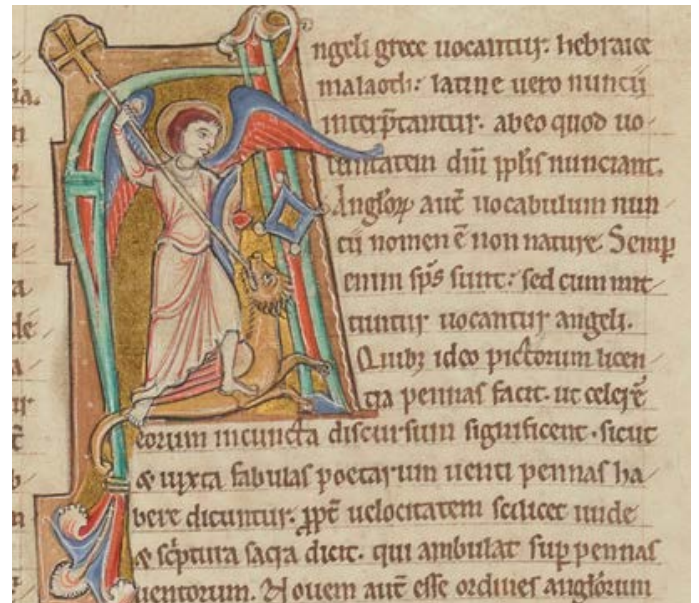 Angeli grece uocantur: hebraice
malaoth: latine uero nuncii
interp̄tantur. ab eo quod uo
luntatem dn̄i pp̄lis nunciant.
Angl̄oꝝ aut̄ uocabulum nun
cii nomen ē non nature. Semp̄
enim sp̄s sunt: sed cum mit
tuntur uocantur angeli.
Quibꝫ ideo pictorum licen
tia pennas facit. ut celerē
eorum in cuncta discursum significent. sicut
& iuxta fabulas poetarum uenti pennas ha
bere dicuntur. pp̄t uelocitatem scilicet unde
& sc̄ptura sacra dicit. qui ambulat sup̄ pennas
uentorum. Nouem aut̄ esse ordines angl̄orum